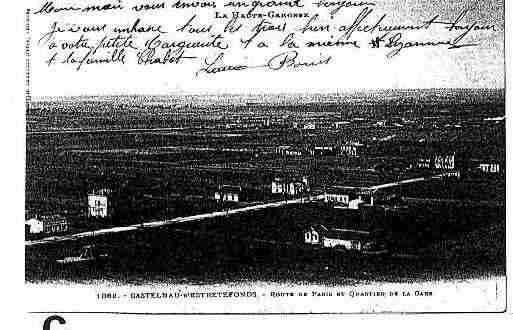 Mon mari vous envoi un grand bonjour
LA HAUTE-GARONNE
Je vous embrasse tous les trois bien affectueusement bonjour
a votre petite Marguerite & a la même & Suzanne
& la famille Chalot
Louise Bonis
1062. - CASTELNAU-D'ESTRETEFONDS - ROUTE DE PARIS ET QUARTIER DE LA GARE
C